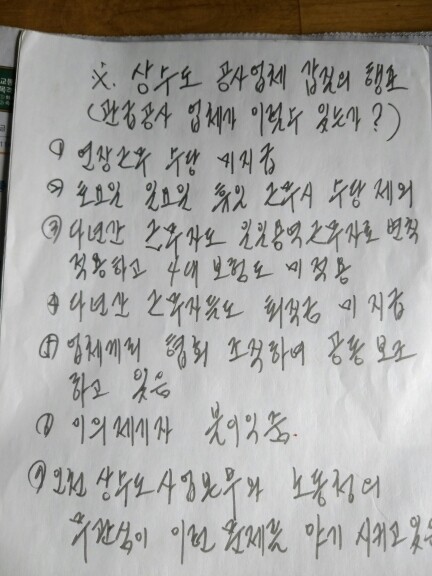 ※. 상수도 공사업체 갑질의 횡포
(관급공사 업체가 이럴수 있는가?)
① 연장근무 수당 미지급
② 토요일 일요일 휴일 근무시 수당 제외
③ 다년간 근무자도 일일용역근무자로 변칙
적용하고 4대 보험도 미적용
④ 다년간 근무자들도 퇴직금 미지급
⑤ 업체끼리 협회 조직하여 공동 모조
하고 있음
⑥ 이의제기자 불이익 줌.
⑦ 인천 상수도사업본부와 노동청의
무관심이 이런 문제를 야기 시키고 있음